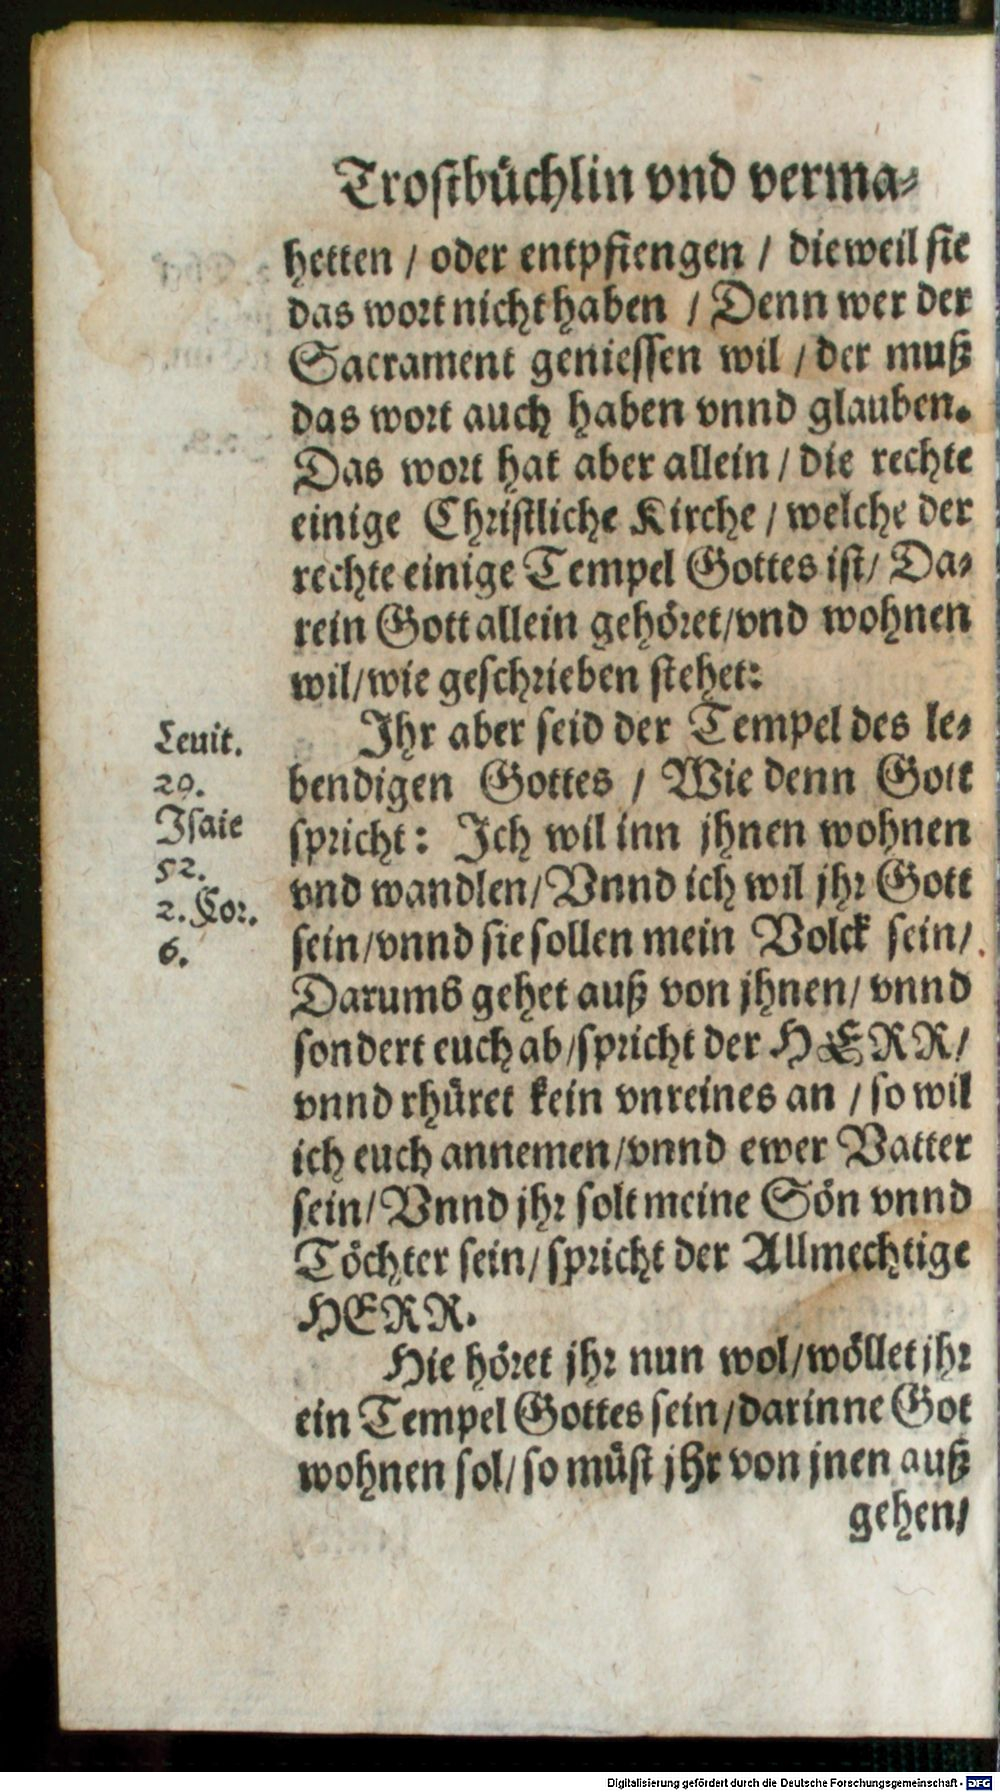 Trostbüchlin vnd verma⸗
hetten / oder entpfiengen / dieweil sie
das wort nicht haben / Denn wer der
Sacrament geniessen wil / der muß
das wort auch haben vnnd glauben.
Das wort hat aber allein / die rechte
einige Christliche Kirche / welche der
rechte einige Tempel Gottes ist / Da⸗
rein Gott allein gehöret / vnd wohnen
wil / wie geschrieben stehet:
Ihr aber seid der Tempel des le⸗
bendigen Gottes / Wie denn Gott
spricht: Ich wil inn jhnen wohnen
vnd wandlen / Vnnd ich wil jhr Gott
sein / vnnd sie sollen mein Volck sein /
Darumb gehet auß von jhnen / vnnd
sondert euch ab / spricht der HERR /
vnnd rhüret kein vnreines an / so wil
ich euch annemen / vnnd ewer Vatter
sein / Vnnd jhr solt meine Sön vnnd
Töchter sein / spricht der Allmechtige
HERR.
Hie höret jhr nun wol / wöllet jhr
ein Tempel Gottes sein / darinne Got
wohnen sol / so müst jhr von jnen auß
gehen /
Leuit.
29.
Isaie
52.
2. Cor.
6.
Digitalisierung gefördert durch die Deutsche Forschungsgemeinschaft - DFG